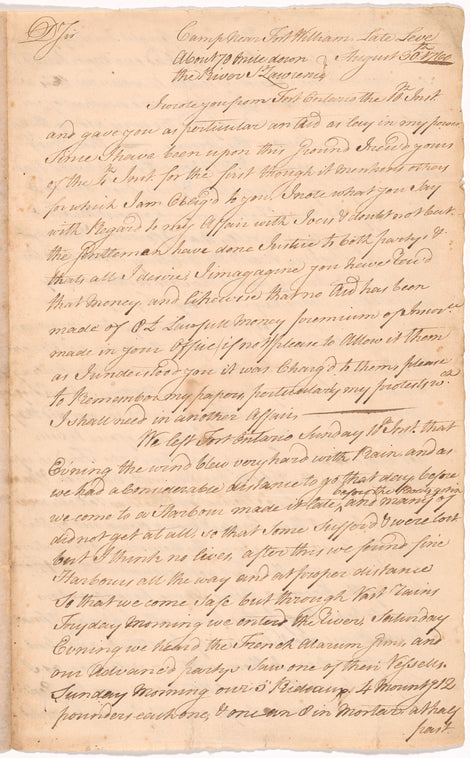 Dr Sir
Camp Near Fort William, Late Leve
About 70 Mile down August 30th 1760
the River St Lawrence
I wrote you from Fort Ontario the 10th Inst
and gave you as particular an as lay in my power
Since I have been upon this Ground I rec'd yours
of the 4 Inst. for the first though it mentions others
for which I am Oblig'd to you. I note what you Say
with Regard to my Affair with & doubt not but
the Gentlemen have done Justice to both partys &
thats all I desire, I imagagine you have rec'd
that Money, and likewise that no has been
made of 8£ Lawfull Money premium of Insur.ce
made in your Office (if not) please to Allow it them
as I understood you it was Charg'd to them, please
to Remember my papers, particularly my protests wch
I shall need in another Affair
We left Fort Ontario Sunday 10th Inst that
Evining the wind blew very hard with Rain and as
we had a Considerable distance to go that day before
we come to a Harbour made it late before the Body got in and many of
did not get at all, so that Some Suffer'd & were lost
but I think no lives, after this we found fine
Harbours all the way and at proper distance
So that we come Safe but through Vast Rains
Fryday Morning we enterd the River, Saturday
Evening we heard the French Alarum Guns, and
our Advanc'd party Saw one of their Vessells
Sunday Morning our 5 4 Mount'd 12
pounders each one, & one an 8 in Mortar at half
past